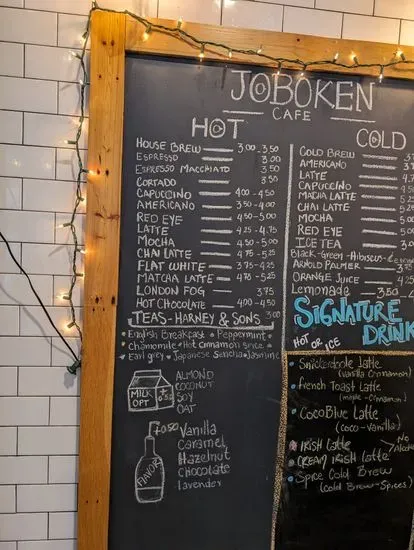 JOBOKEN
CAFE
HOT
HOUSE BREW 3.00 - 3.50
ESPRESSO 3.00
ESPRESSO MACCHIATO 3.50
CORTADO 3.50
CAPUCCINO 4.00 - 4.50
AMERICANO 3.50 - 4.00
RED EYE 4.50 - 5.00
LATTE 4.25 - 4.75
MOCHA 4.50 - 5.00
CHAI LATTE 4.75 - 5.25
FLAT WHITE 3.75 - 4.25
MATCHA LATTE 4.75 - 5.25
LONDON FOG 3.75
HOT CHOCOLATE 4.00 - 4.50
TEAS - HARNEY & SONS 3.00
• English Breakfast • Peppermint
• Chamomile • Hot Cinnamon Spice •
• Earl grey • Japanese Sencha • Jasmine
MILK OPT
ALMOND
COCONUT
SOY
OAT
FLAVOR
Vanilla
Caramel
Hazelnut
Chocolate
lavender
COLD
COLD BREW
AMERICANO
LATTE
CAPUCCINO
MATCHA LATTE
CHAI LATTE
MOCHA
RED EYE
ICE TEA
Black - Green - Hibiscus -
ARNOLD PALMER
ORANGE JUICE 4.25
Lemonade 3.50
SIGNATURE
DRINK
HOT OR ICE
• Snickerdoodle latte
(vanilla Cinnamon)
• French Toast Latte
(maple - Cinnamon)
• COCOBLUE Latte
(coco - vanilla)
• IRISH latte
• CREAM IRISH latte
NO
• Spice Cold Brew
(cold Brew - Spices)